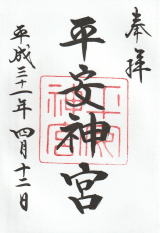 奉拝
平安神宮
平成三十一年 四月十二日